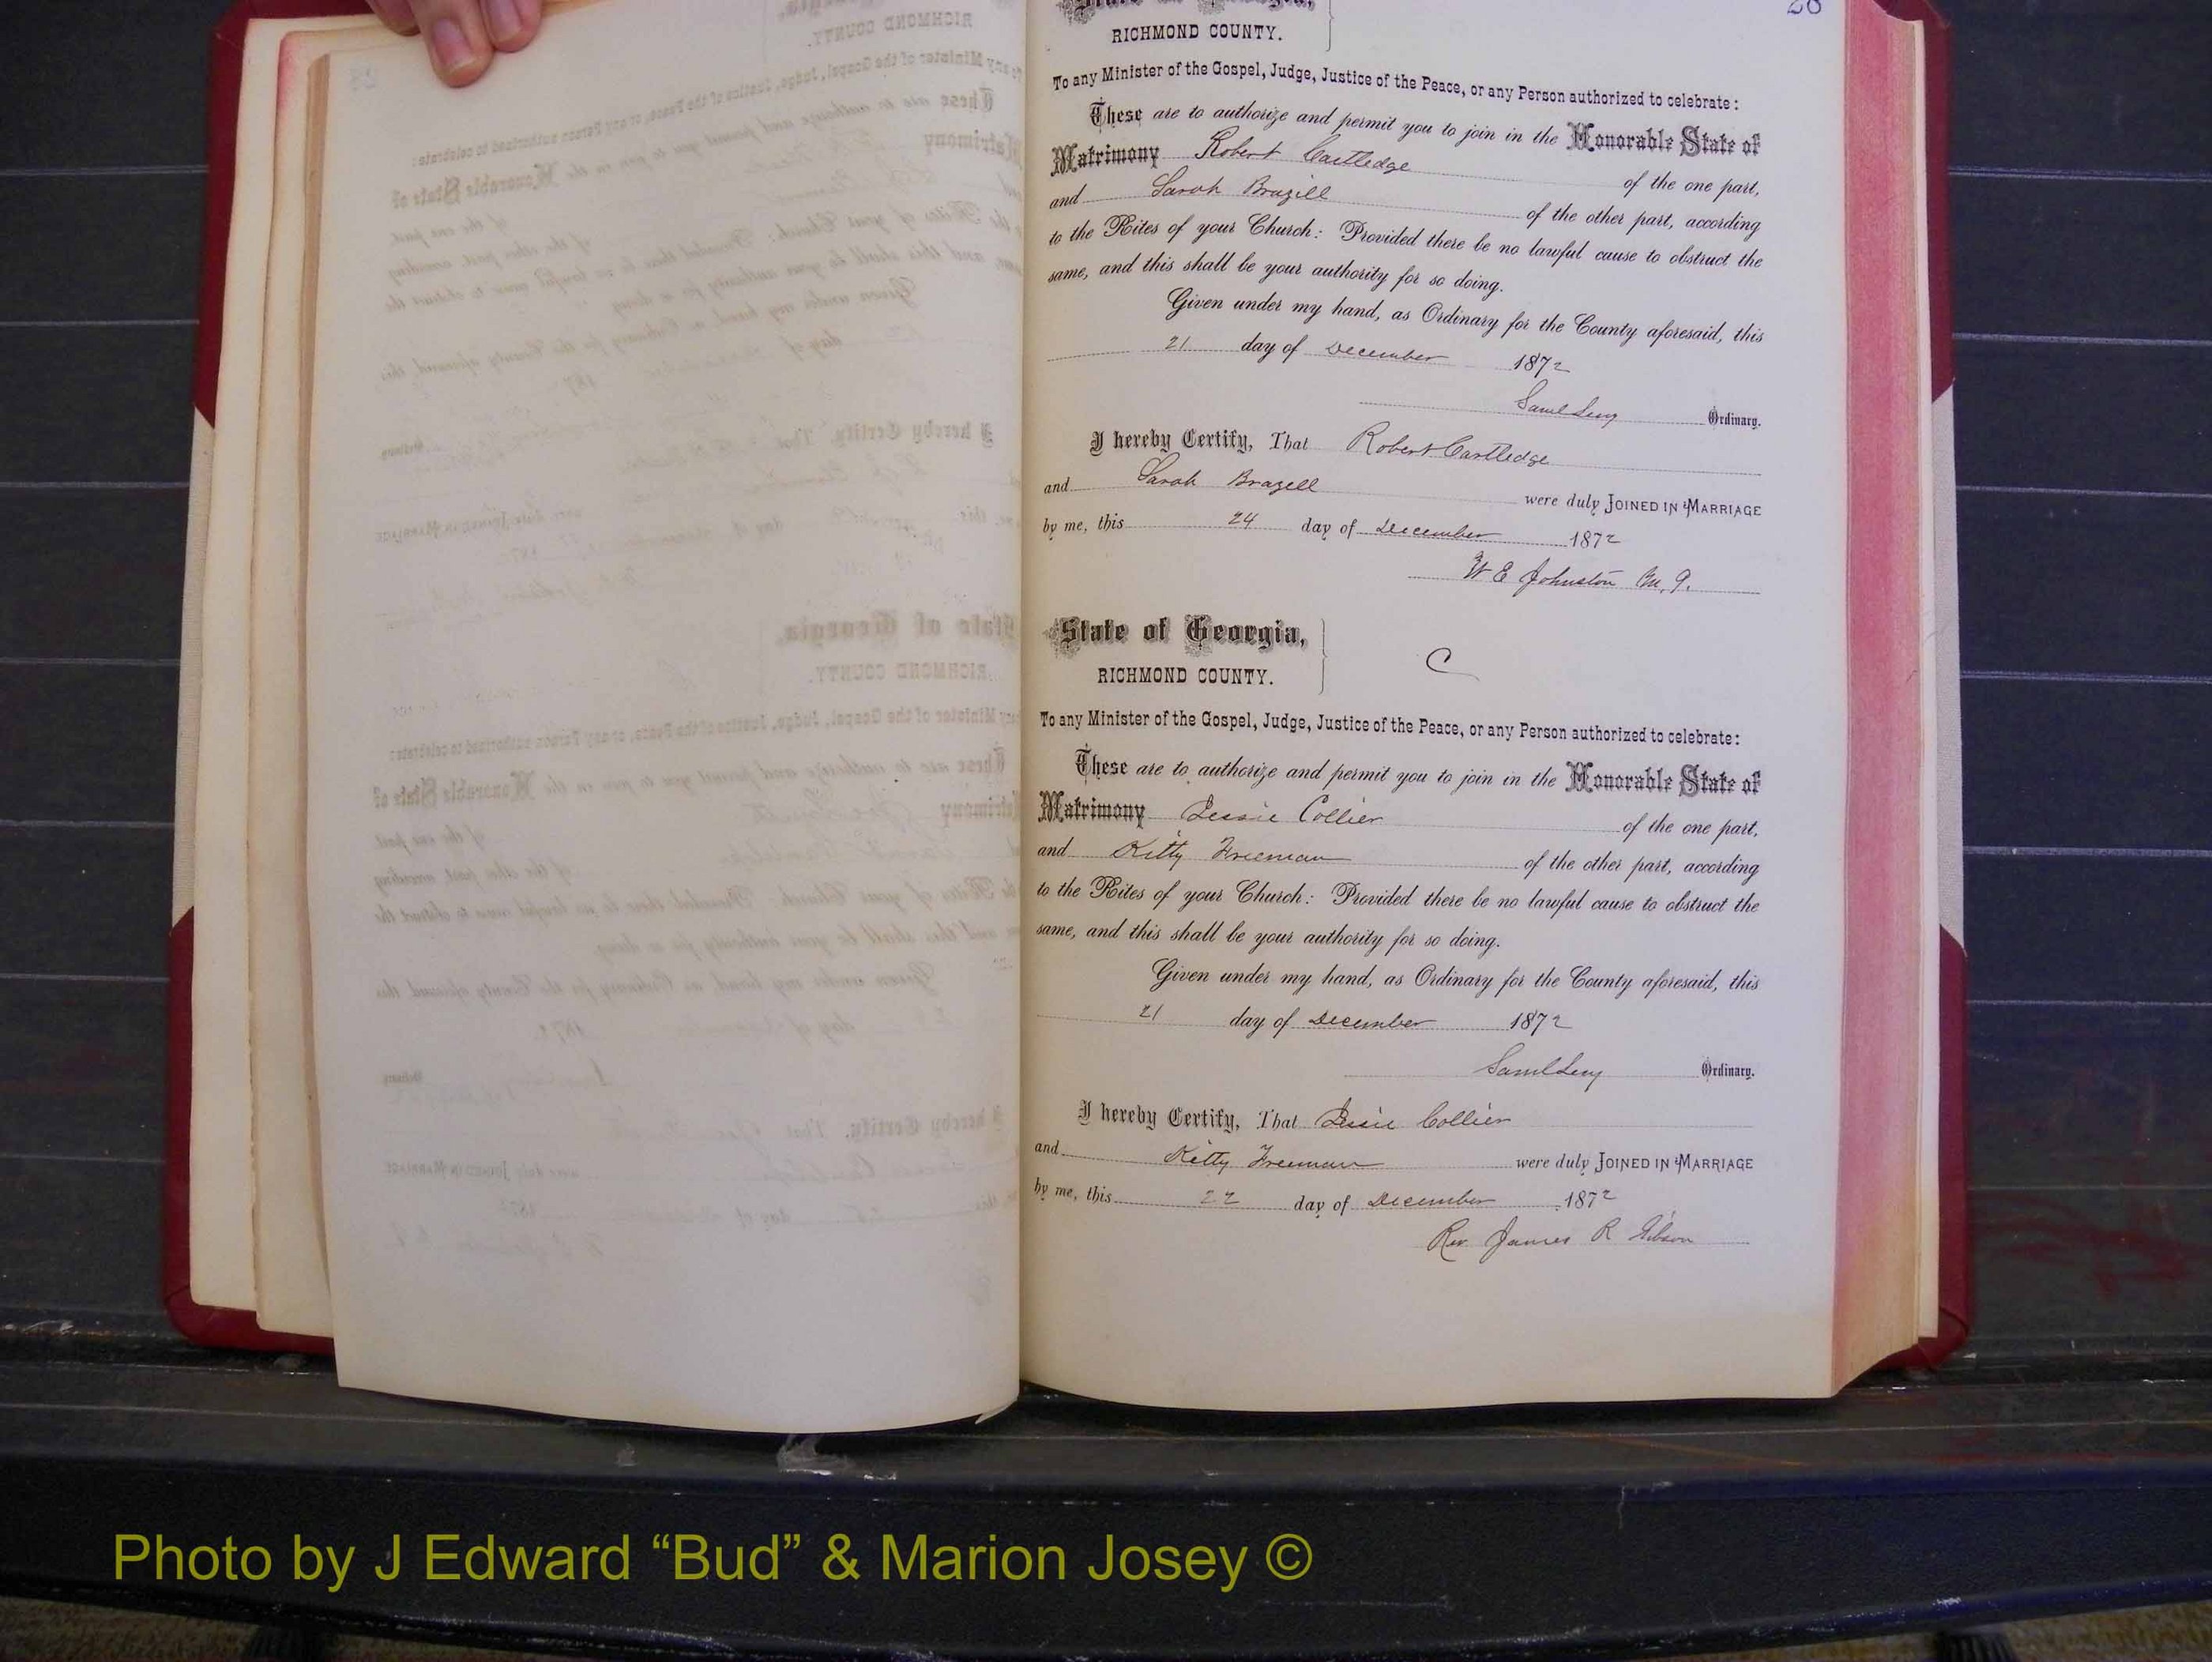 State of Georgia,
RICHMOND COUNTY.
To any Minister of the Gospel, Judge, Justice of the Peace, or any Person authorized to celebrate:
These are to authorize and permit you to join in the Honorable State of
Matrimony Robert Cartledge of the one part,
and Sarah Brazill of the other part, according
to the Rites of your Church: Provided there be no lawful cause to obstruct the
same, and this shall be your authority for so doing.
Given under my hand, as Ordinary for the County aforesaid, this
21 day of December 1872
Saml Levy Ordinary.
I hereby Certify, That Robert Cartledge
and Sarah Brazell were duly JOINED IN MARRIAGE
by me, this 24 day of December 1872
W E Johnston M, G.
State of Georgia,
RICHMOND COUNTY.
C
To any Minister of the Gospel, Judge, Justice of the Peace, or any Person authorized to celebrate:
These are to authorize and permit you to join in the Honorable State of
Matrimony Jessie Collier of the one part,
and Kitty Freeman of the other part, according
to the Rites of your Church: Provided there be no lawful cause to obstruct the
same, and this shall be your authority for so doing.
Given under my hand, as Ordinary for the County aforesaid, this
21 day of December 1872
Saml Levy Ordinary.
I hereby Certify, That Jessie Collier
and Kitty Freeman were duly JOINED IN MARRIAGE
by me, this 22 day of December 1872
Rev. James R Gibson
Photo by J Edward “Bud” & Marion Josey ©